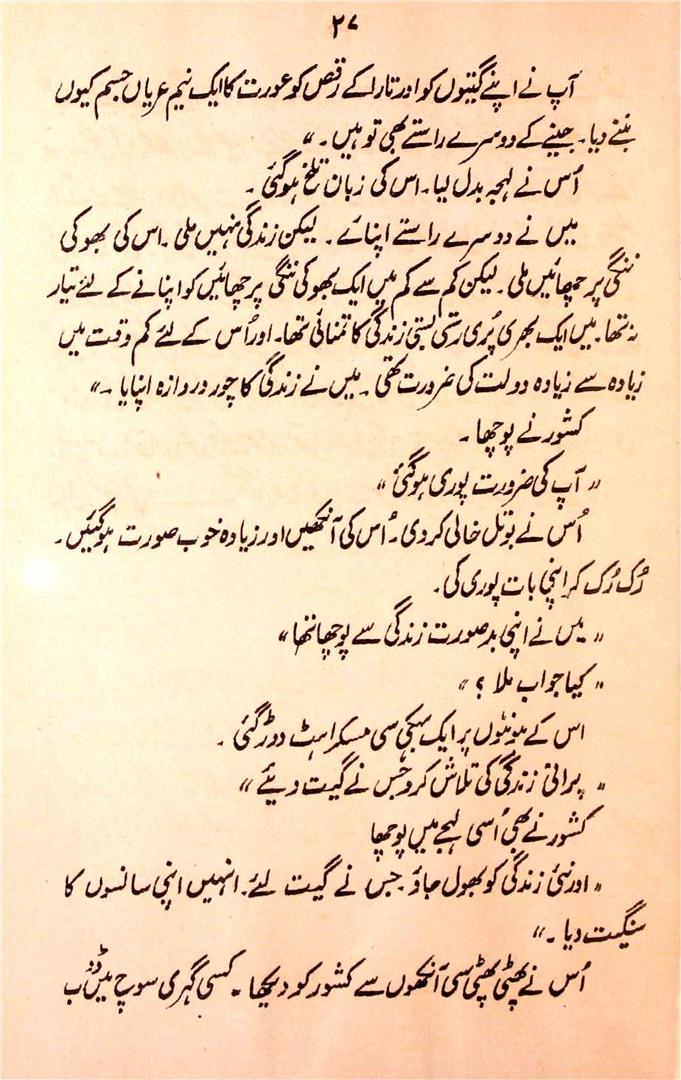 ۲۷
آپ نے اپنے گیتوں کو اور تارا کے رقص کو عورت کا ایک نیم عریاں جسم کیوں
بننے دیا۔ جینے کے دوسرے راستے بھی تو ہیں۔"
اُس نے لہجہ بدل لیا۔ اس کی زبان تلخ ہو گئی۔
میں نے دوسرے راستے اپنائے۔ لیکن زندگی نہیں ملی۔ اس کی بھوکی
ننگی پرچھائیں ملی۔ لیکن کم سے کم میں ایک بھوکی ننگی پرچھائیں کو اپنانے کے لئے تیار
نہ تھا۔ میں ایک بھری پُری رستی بستی زندگی کا تمنائی تھا۔ اور اُس کے لئے کم وقت میں
زیادہ سے زیادہ دولت کی ضرورت تھی۔ میں نے زندگی کا چور دروازہ اپنایا۔"
کشور نے پوچھا۔
"آپ کی ضرورت پوری ہو گئی"
اُس نے بوتل خالی کر دی۔ اُس کی آنکھیں اور زیادہ خوب صورت ہو گئیں۔
رُک رُک کر اپنی بات پوری کی۔
"میں نے اپنی بدصورت زندگی سے پوچھا تھا"
"کیا جواب ملا؟"
اس کے ہونٹوں پر ایک بہکی سی مسکراہٹ دوڑ گئی۔
"پرانی زندگی کی تلاش کرو جس نے گیت دیئے"
کشور نے بھی اُسی لہجے میں پوچھا
"اور نئی زندگی کو بھول جاؤ جس نے گیت لئے۔ انہیں اپنی سانسوں کا
سنگیت دیا۔"
اُس نے پھٹی پھٹی سی آنکھوں سے کشور کو دیکھا۔ کسی گہری سوچ میں ڈوب